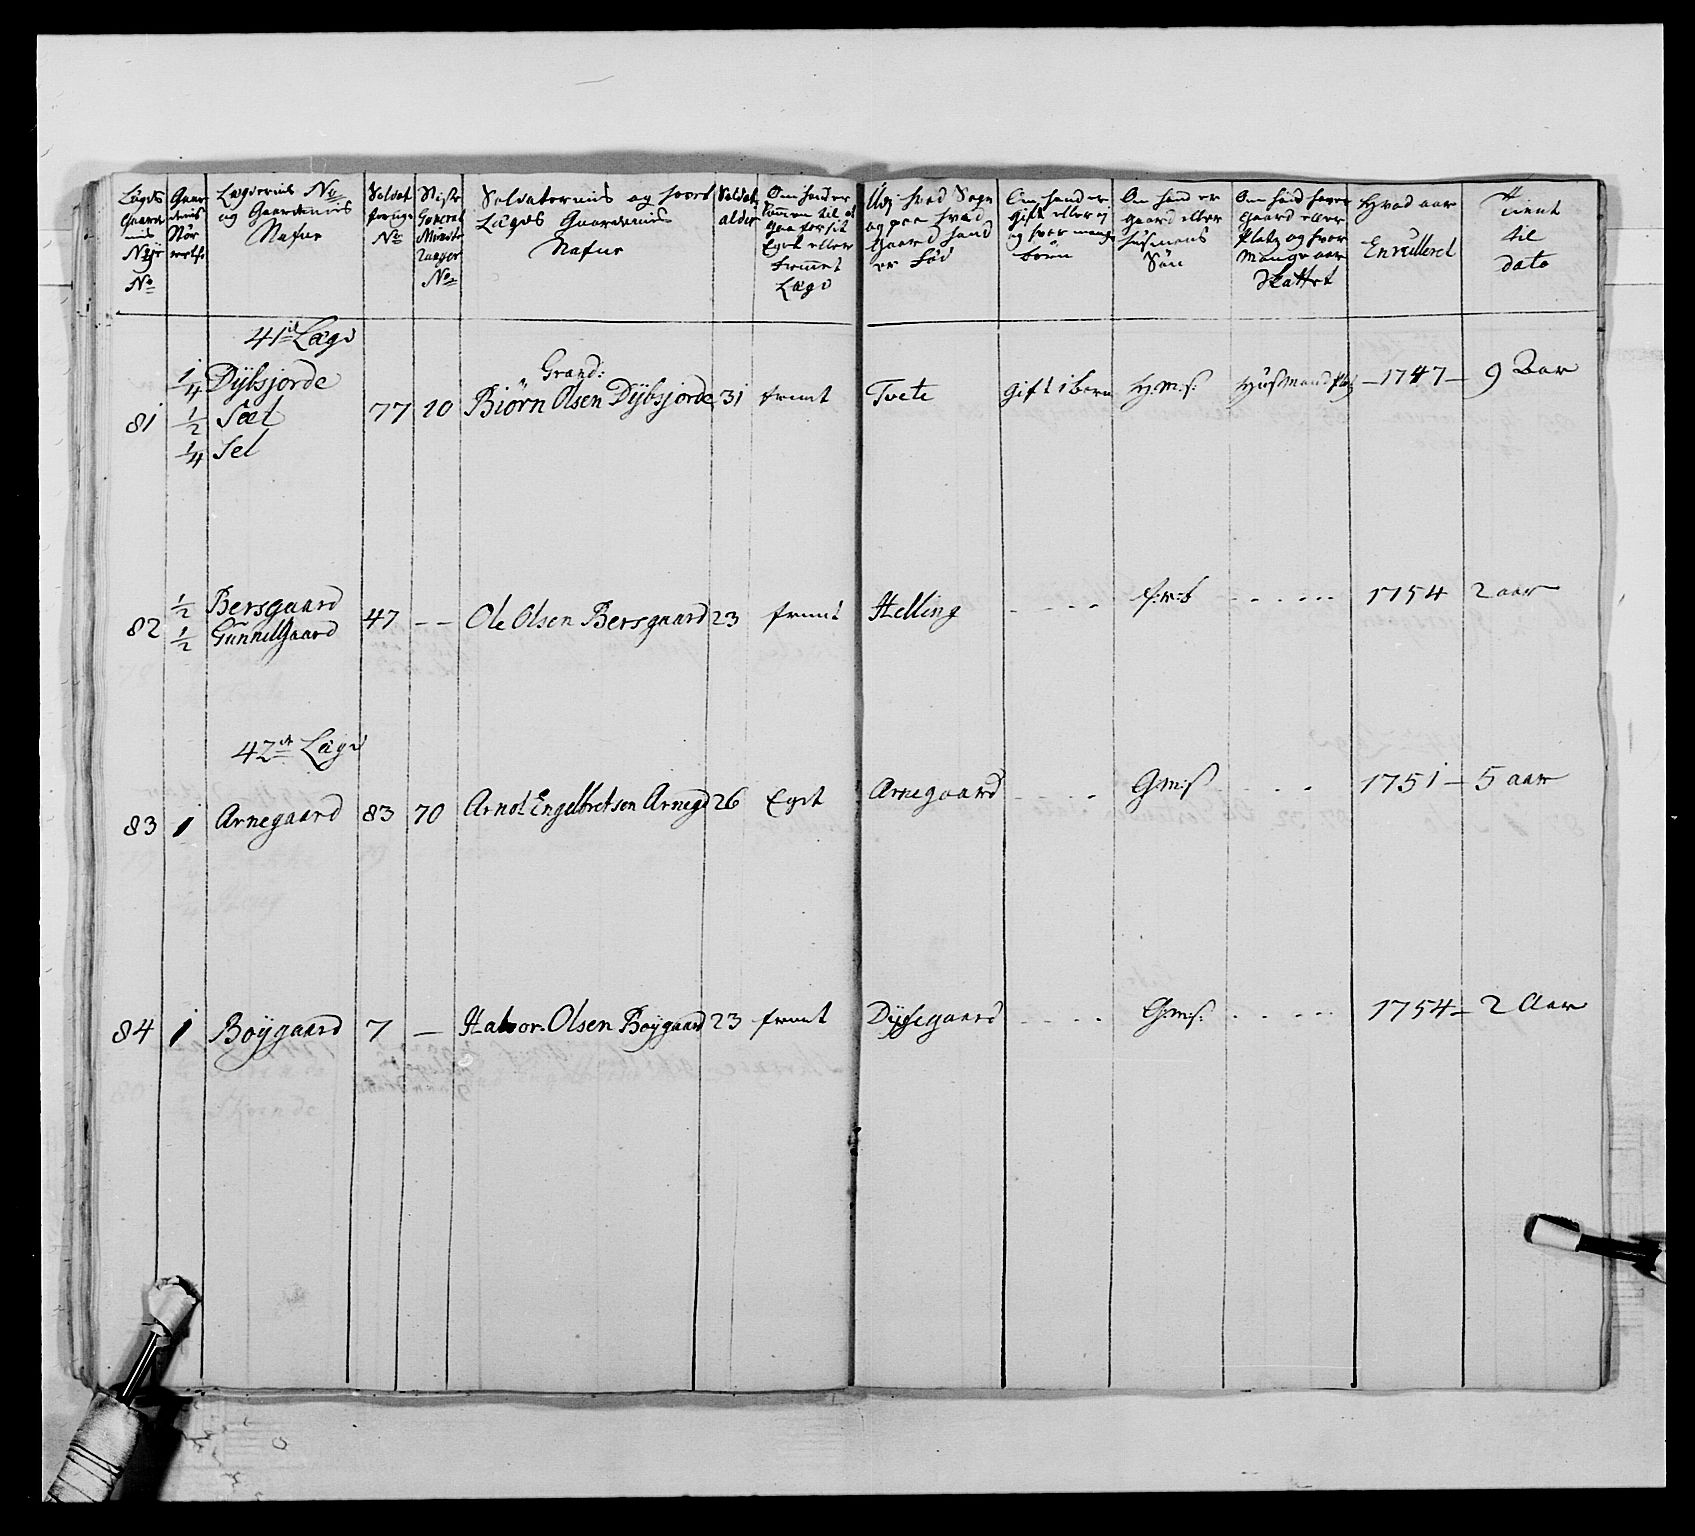 Lægds
Gaarde
nes
Nÿe
No
Gaar
denes
Stør
relse
Lægdernis No
og Gaardernis
Nafne
Soldat
forrige
No
Sidste
General
Mønste
No
Soldaternis og hvert
Lægds Gaardernis
Nafne
Soldat
alder
Om hand er
kommen til at
gaa for sit
Eget eller
fremmet
Lægd
Udj hvad Sogn
og paa hvad
Gaard hand
er Fød
Om hand er
gift eller ej
og hvor mange
børn
Om hand er
gaard eller
husmans
Søn
Om hand haver
gaard eller
Platz og hvor
mange aar
Skattet
Hvad aar
Enrulleret
Tient
til
dato
41de Lægd
81
1/4 Dÿbsjorde
1/2 Sæt
1/4 Sel
77 20
Grand:
Biörn Olsen Dÿbsjorde 31 fremt
Tvete Gift 1 barn H:m:s: Husmand Platz - 1747 - 9 Aar
82
1/2 Bersgaard
1/2 Gunnelsgaard
47 - - Ole Olsen Bersgaard 23 fremt
Helling - - - - - - - - - 1754 2 aar
42de Lægd
83 1 Arnegaard 83 70 Arnol Engelbretsen Arnegd 26 Eget
Arnegaard - - - G:m:s - - - 1751 - 5 aar
84 1 Boÿgaard 7 - Halvor Olsen Boÿgaard 23 fremt
- - - - G:m:s: - - - - 1754 - 2 Aar